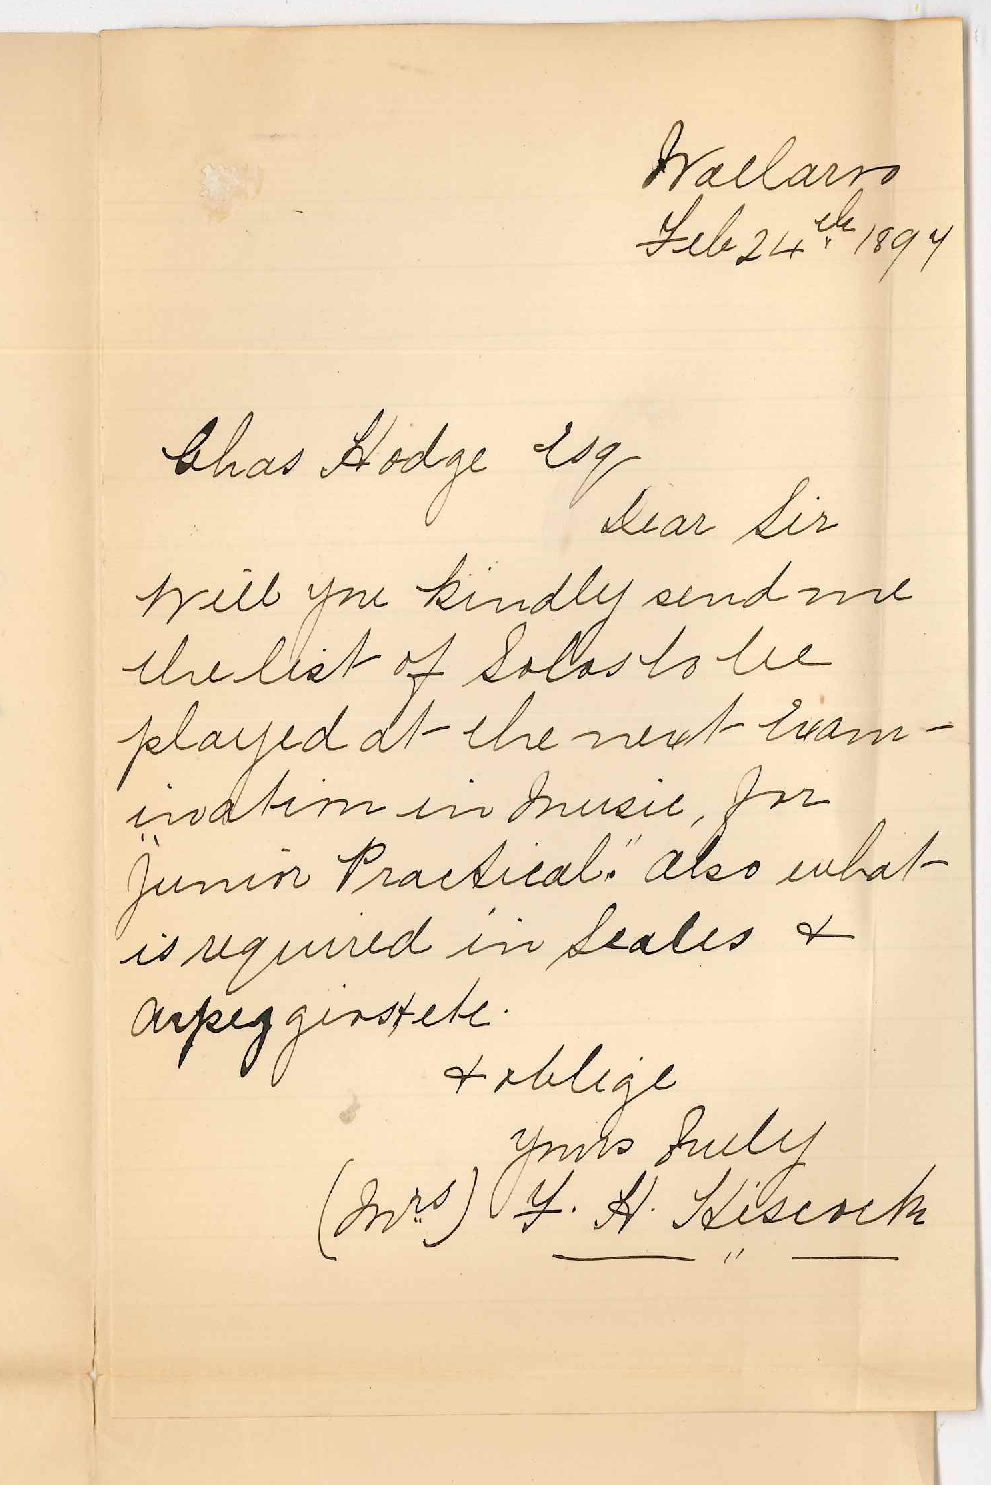 Wallaroo
Feb 24th 1897
Chas Hodge Esq
Dear Sir
Will you kindly send me
the list of Solos to be
played at the next Exam-
ination in Music, for
"Junior Practical." Also what
is required in Scales &
Arpeggios & etc.
& oblige
Yours Truly
(Mrs) F. H. Hiscock